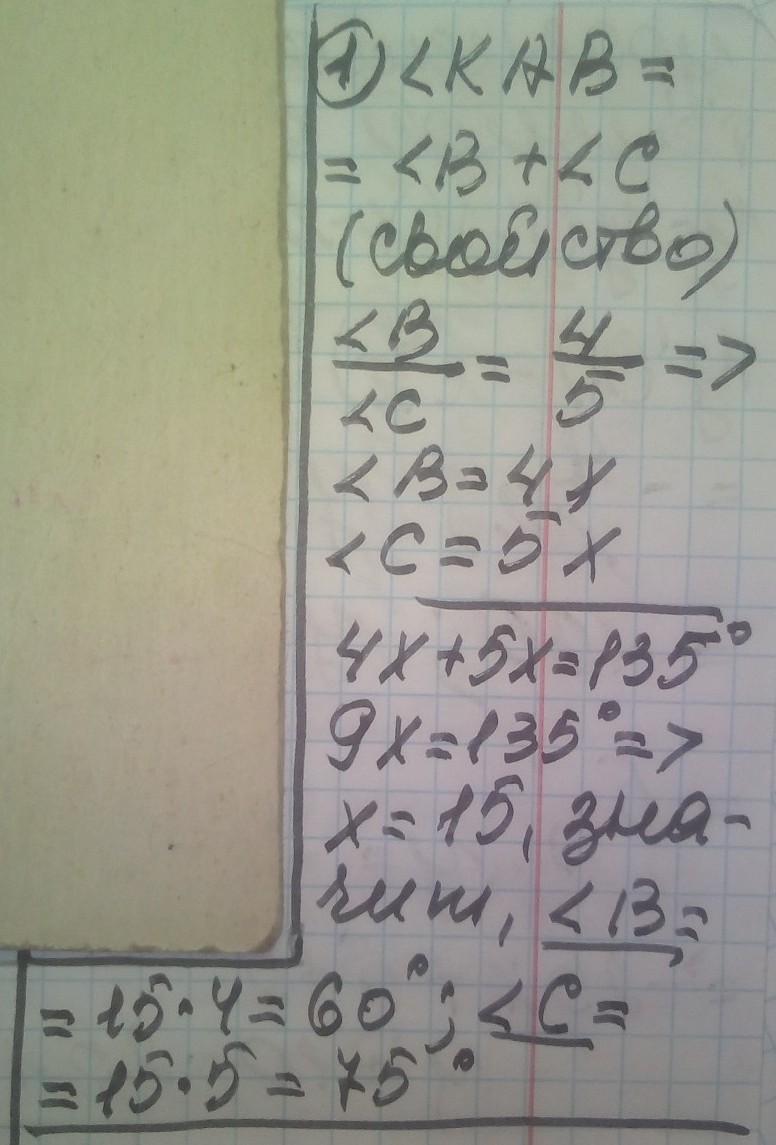 ① <KAB =
= <B + <C
(свойство)
<B/<C = 4/5 =>
<B = 4x
<C = 5x
4x+5x=135°
9x=135° =>
x=15, зна-
чит, <B=
= 15·4 = 60°; <C=
= 15·5 = 75°